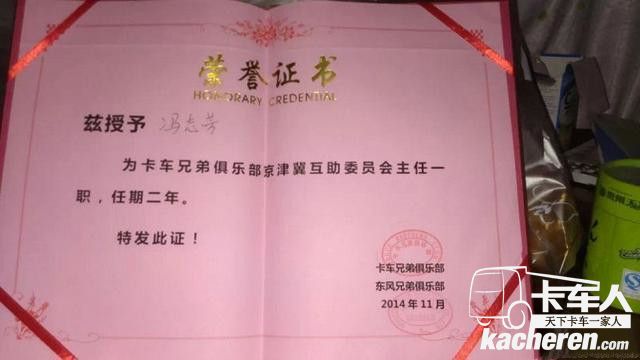 荣誉证书
HONORARY CREDENTIAL
兹授予 冯志芳
为卡车兄弟俱乐部京津冀互助委员会主任一
职，任期二年。
特发此证！
卡车兄弟俱乐部
东风兄弟俱乐部
2014年11月
卡车人
天下卡车一家人
kacheren.com